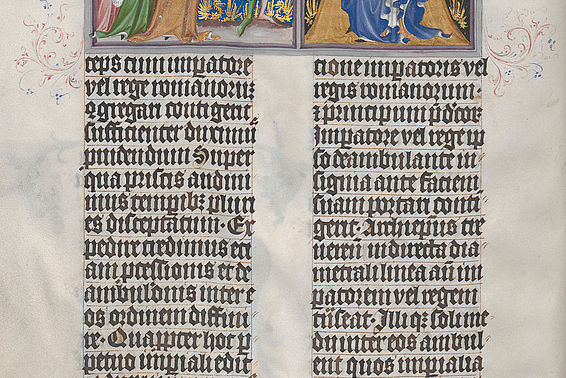 ceps cum imp̲atore
vel rege romanorum
ꝯgregari contigerit
sufficienter duximus
prouidendum Super
qua priscis audiui
mus tempeb̅z pluri
es disceptatum · Ex
pedire credimus eci
am ꝓcessionis et de
ambul̅onis inter e
os ordinem diffini
re · Quapp̲ter hoc p̲
petuo imp̲iali edic
cione imp̲atoris vel
regis romanorum ·
⁊ principum p̅dc̅or̅
Imperatore vel rege ip
so deambulante in
signia ante faciem
suam portari conti
gerit · Archiep̅us tre
ueren̅ in directa dia
metrali linea an̅ im
patorem vel regem
trāseat · Illiq̅z soli me
dij inter eos ambul
ent quos imp̲ialia